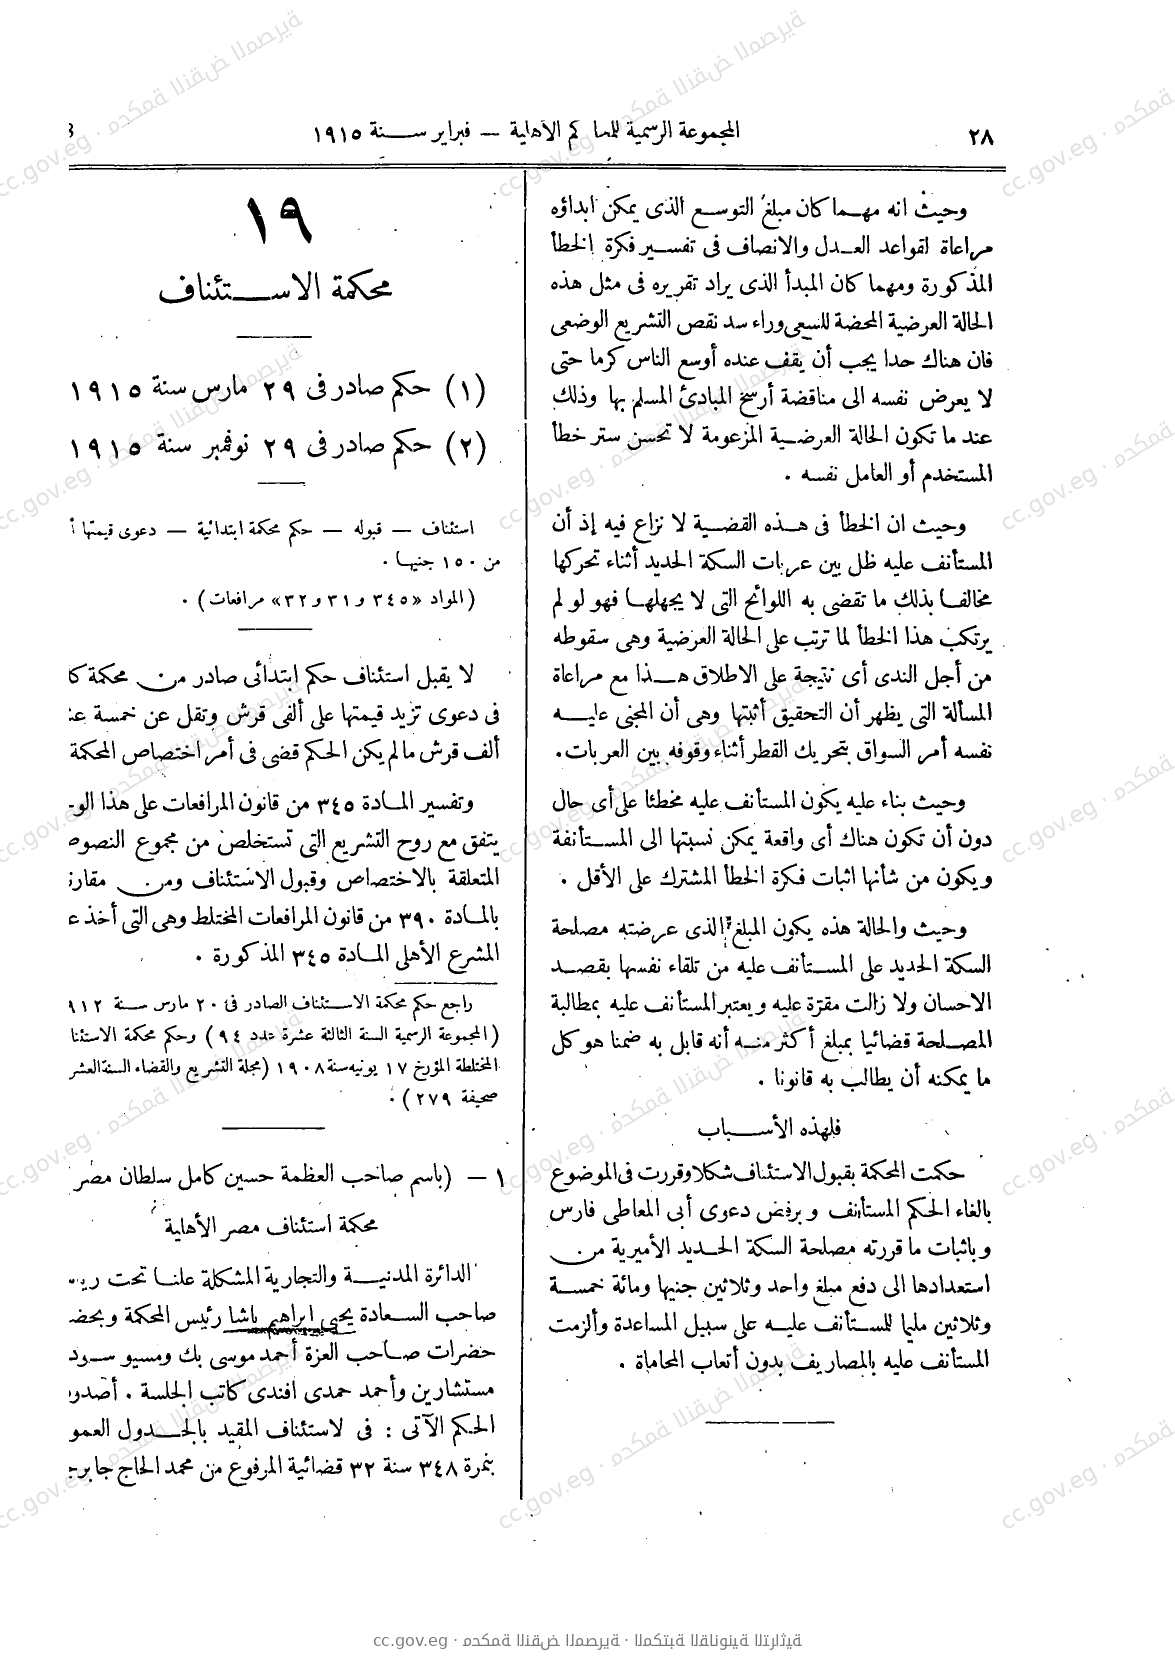 ٢٨
المجموعة الرسمية للمحاكم الأهلية — فبراير سنة ١٩١٥
وحيث انه مهما كان مبلغ التوسع الذى يمكن ابداؤه
مراعاة لقواعد العدل والانصاف فى تفسير فكرة الخطأ
المذكورة ومهما كان المبدأ الذى يراد تقريره فى مثل هذه
الحالة العرضية المحضة للسعى وراء سد نقص التشريع الوضعى
فان هناك حدا يجب أن يقف عنده أوسع الناس كرما حتى
لا يعرض نفسه الى مناقضة أرسخ المبادئ المسلم بها وذلك
عند ما تكون الحالة العرضية المزعومة لا تحسن ستر خطأ
المستخدم أو العامل نفسه .
وحيث ان الخطأ فى هذه القضية لا نزاع فيه إذ أن
المستأنف عليه ظل بين عربات السكة الحديد أثناء تحركها
مخالفا بذلك ما تقضى به اللوائح التى لا يجهلها فهو لو لم
يرتكب هذا الخطأ لما ترتب على الحالة العرضية وهى سقوطه
من أجل الندى أى نتيجة على الاطلاق هذا مع مراعاة
المسألة التى يظهر أن التحقيق أثبتها وهى أن المجنى عليه
نفسه أمر السواق بتحريك القطر أثناء وقوفه بين العربات.
وحيث بناء عليه يكون المستأنف عليه مخطئا على أى حال
دون أن تكون هناك أى واقعة يمكن نسبتها الى المستأنفة
ويكون من شأنها اثبات فكرة الخطأ المشترك على الأقل .
وحيث والحالة هذه يكون المبلغ الذى عرضته مصلحة
السكة الحديد على المستأنف عليه من تلقاء نفسها بقصد
الاحسان ولا زالت مقرّة عليه ويعتبر المستأنف عليه بمطالبة
المصلحة قضائيا بمبلغ أكثر منه أنه قابل به ضمنا هو كل
ما يمكنه أن يطالب به قانونا .
فلهذه الأسباب
حكمت المحكمة بقبول الاستئناف شكلا وقررت فى الموضوع
بالغاء الحكم المستأنف وبرفض دعوى أبى المعاطى فارس
وباثبات ما قررته مصلحة السكة الحديد الأميرية من
استعدادها الى دفع مبلغ واحد وثلاثين جنيها ومائة خمسة
وثلاثين مليما للمستأنف عليه على سبيل المساعدة وألزمت
المستأنف عليه بالمصاريف بدون أتعاب المحاماة .
١٩
محكمة الاستئناف
(١) حكم صادر فى ٢٩ مارس سنة ١٩١٥
(٢) حكم صادر فى ٢٩ نوفمبر سنة ١٩١٥
استئناف — قبوله — حكم محكمة ابتدائية — دعوى قيمتها أ
من ١٥٠ جنيها .
(المواد «٣٤٥ و٣١ و٣٢» مرافعات) .
لا يقبل استئناف حكم ابتدائى صادر من محكمة كا
فى دعوى تزيد قيمتها على ألفى قرش وتقل عن خمسة عش
ألف قرش ما لم يكن الحكم قضى فى أمر اختصاص المحكمة
وتفسير المادة ٣٤٥ من قانون المرافعات على هذا الو
يتفق مع روح التشريع التى تستخلص من مجموع النصوص
المتعلقة بالاختصاص وقبول الاستئناف ومن مقار
بالمادة ٣٩٠ من قانون المرافعات المختلط وهى التى أخذ ع
المشرع الأهلى المادة ٣٤٥ المذكورة .
راجع حكم محكمة الاستئناف الصادر فى ٢٠ مارس سنة ٩١٢
(المجموعة الرسمية السنة الثالثة عشرة عدد ٩٤) وحكم محكمة الاستئنا
المختلطة المؤرخ ١٧ يونيه سنة ١٩٠٨ (مجلة التشريع والقضاء السنة العشر
صحيفة ٢٧٩) .
١ — (باسم صاحب العظمة حسين كامل سلطان مصر
محكمة استئناف مصر الأهلية
الدائرة المدنية والتجارية المشكلة علنا تحت ريا
صاحب السعادة يحيى ابراهيم باشا رئيس المحكمة وبحض
حضرات صاحب العزة أحمد موسى بك ومسيو سود
مستشارين وأحمد حمدى افندى كاتب الجلسة . أصدر
الحكم الآتى : فى لاستئناف المقيد بالجدول العمو
بنمرة ٣٤٨ سنة ٣٢ قضائية المرفوع من محمد الحاج جابر
cc.gov.eg · محكمة النقض المصرية · المكتبة القانونية التراثية